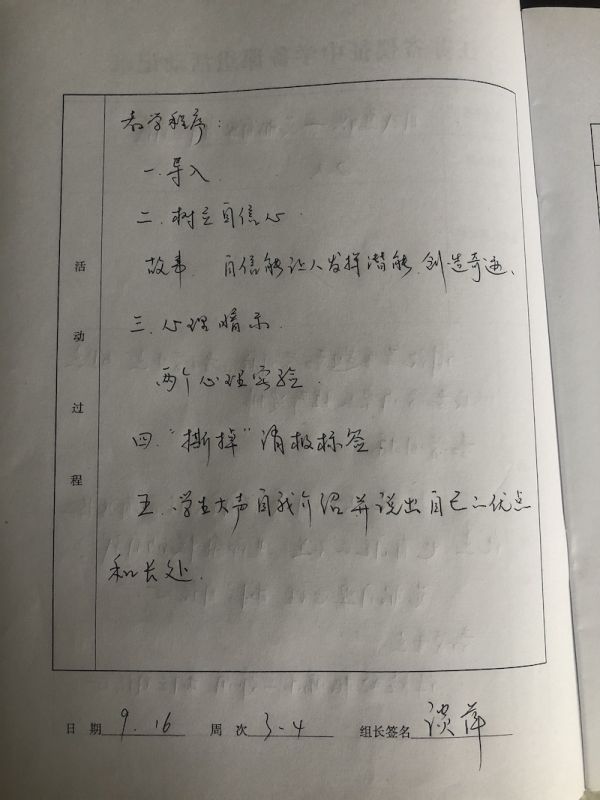 教学程序:
一.导入
二.树立自信心.
故事. 自信能让人发挥潜能.创造奇迹、
三.心理暗示.
两个心理实验.
四."撕掉"消极标签
五.学生大声自我介绍并说出自己的优点
和长处.
活动过程
日 期 9.16 周 次 3-4 组长签名 谈萍